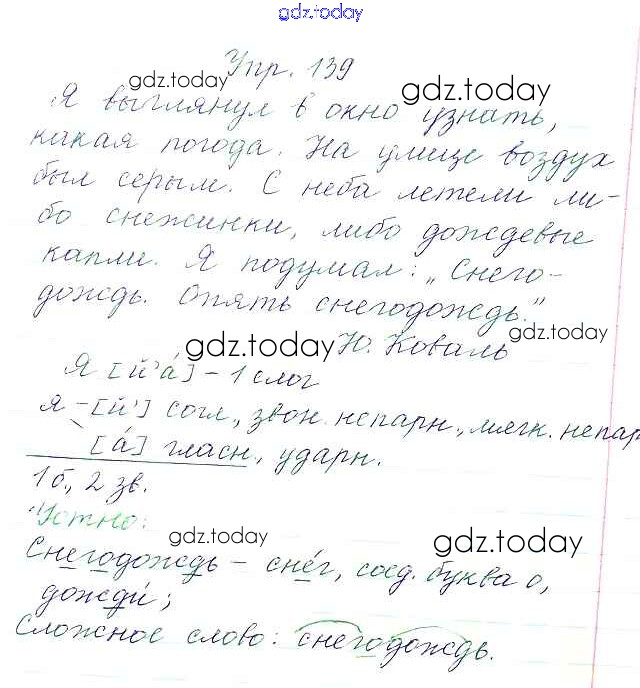 gdz.today
Упр. 139
gdz.today
gdz.today
Я выглянул в окно узнать,
какая погода. На улице воздух
был серым. С неба летели ли-
бо снежинки, либо дождевые
капли. Я подумал: „Снего-
дождь. Опять снегодождь."
gdz.today
gdz.today
Ю. Коваль
Я [й'а́] - 1 слог
я - [й'] согл., звон. непарн., мягк. непар
[а́] гласн., ударн.
1 б., 2 зв.
Устно:
gdz.today
gdz.today
Снегодождь - сне́г, соед. буква о,
дожди́;
Сложное слово: снегодождь.